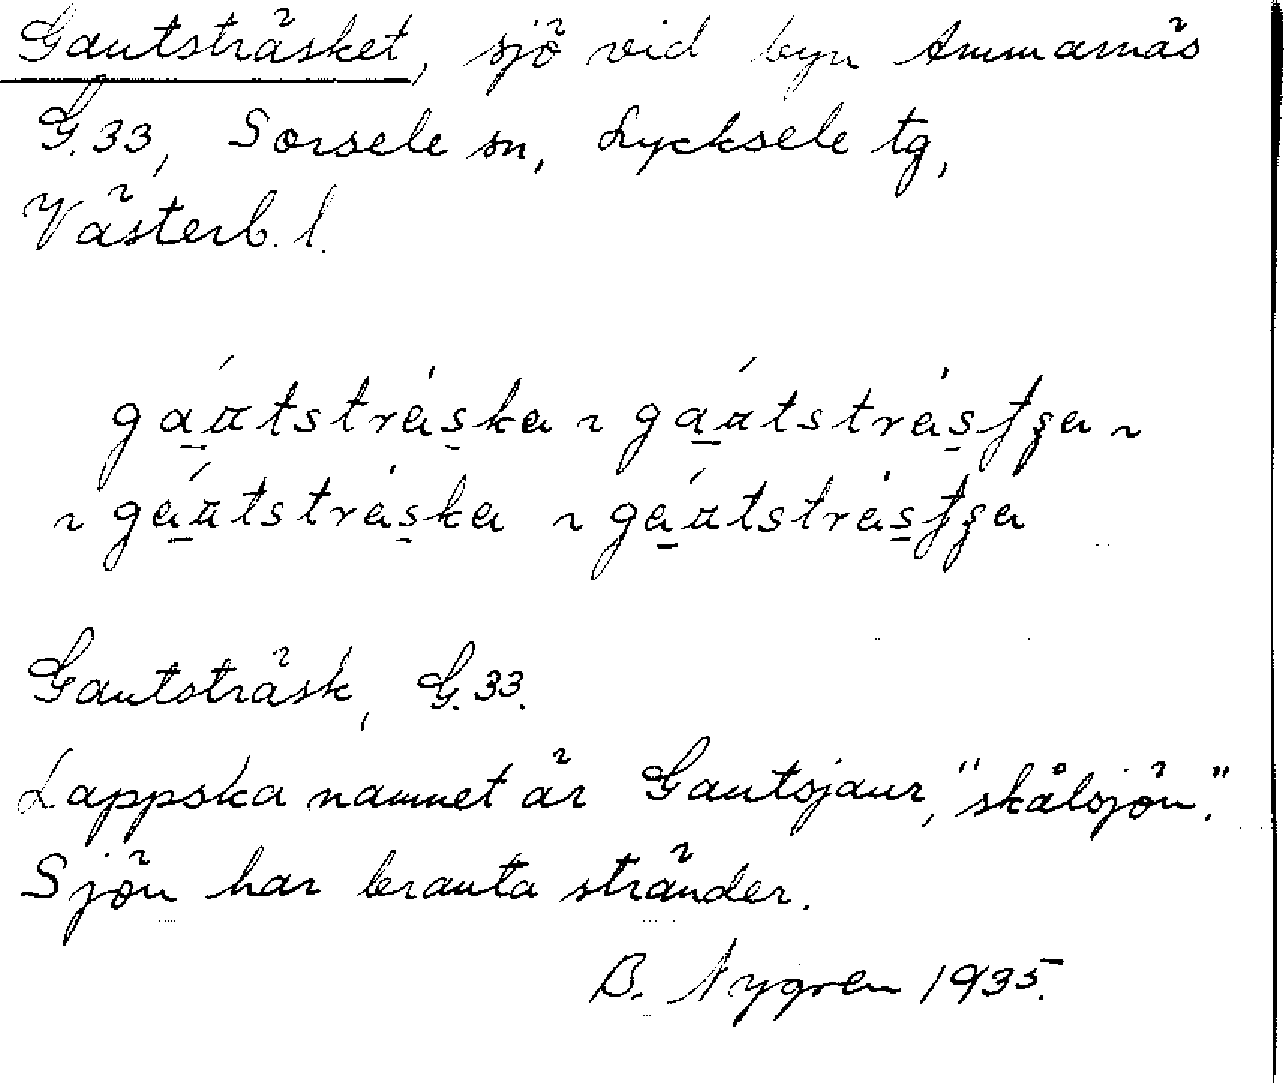 Gautsträsket, sjö vid byn Ammarnäs
G.33, Sorsele sn, Lycksele tg,
Västerb. l.
gau̯tstrȧs̱ka ~ gáu̯tstrȧs̱ʃʒa ~
~ gáu̯tstrȧs̱ka ~ gáu̯tstrȧs̱ʃʒa
Gautsträsk, G.33.
Lappska namnet är Gautsjaur, "skålsjön".
Sjön har branta stränder.
B. Nygren 1935.